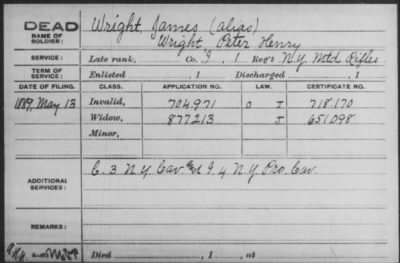 DEAD Wright, James (alias)
NAME OF SOLDIER: Wright, Peter Henry
SERVICE: Late rank, Co. I, 1 Reg't N.Y. Mtd Rifles
TERM OF SERVICE: Enlisted , 1 Discharged , 1
DATE OF FILING. CLASS. APPLICATION NO. LAW. CERTIFICATE NO.
1889, May 13 Invalid, 704.971 O J 718.170
Widow, 877213 J 651.098
Minor,
ADDITIONAL SERVICES: C. 3 N.Y. Cav. & I. 4 N.Y. Pro. Cav.
REMARKS:
Died , 1 , at